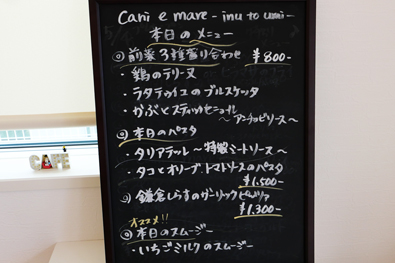 Cani e mare - inu to umi -
本日のメニュー
◎前菜3種盛り合わせ ¥800-
・鶏のテリーヌ
・ラタトゥイユのブルスケッタ
・かぶとスティックセニョール
〜アンチョビソース〜
◎本日のパスタ
・タリアテッレ〜特製ミートソース〜
・タコとオリーブ トマトソースのパスタ
¥1.500-
◎鎌倉しらすのガーリックピッツァ
¥1.300-
オススメ!!
◎本日のスムージー
・いちごミルクのスムージー
CAFE